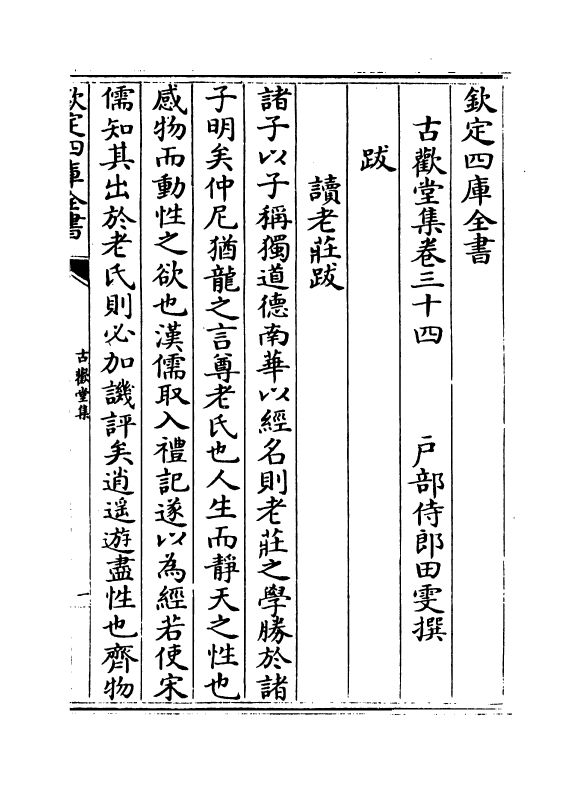 欽定四庫全書
古歡堂集卷三十四 戶部侍郎田雯撰
跋
讀老莊跋
諸子以子稱獨道德南華以經名則老莊之學勝於諸
子明矣仲尼猶龍之言尊老氏也人生而靜天之性也
感物而動性之欲也漢儒取入禮記遂以為經若使宋
儒知其出於老氏則必加譏評矣逍遥遊盡性也齊物
欽定四庫全書
古歡堂集
一